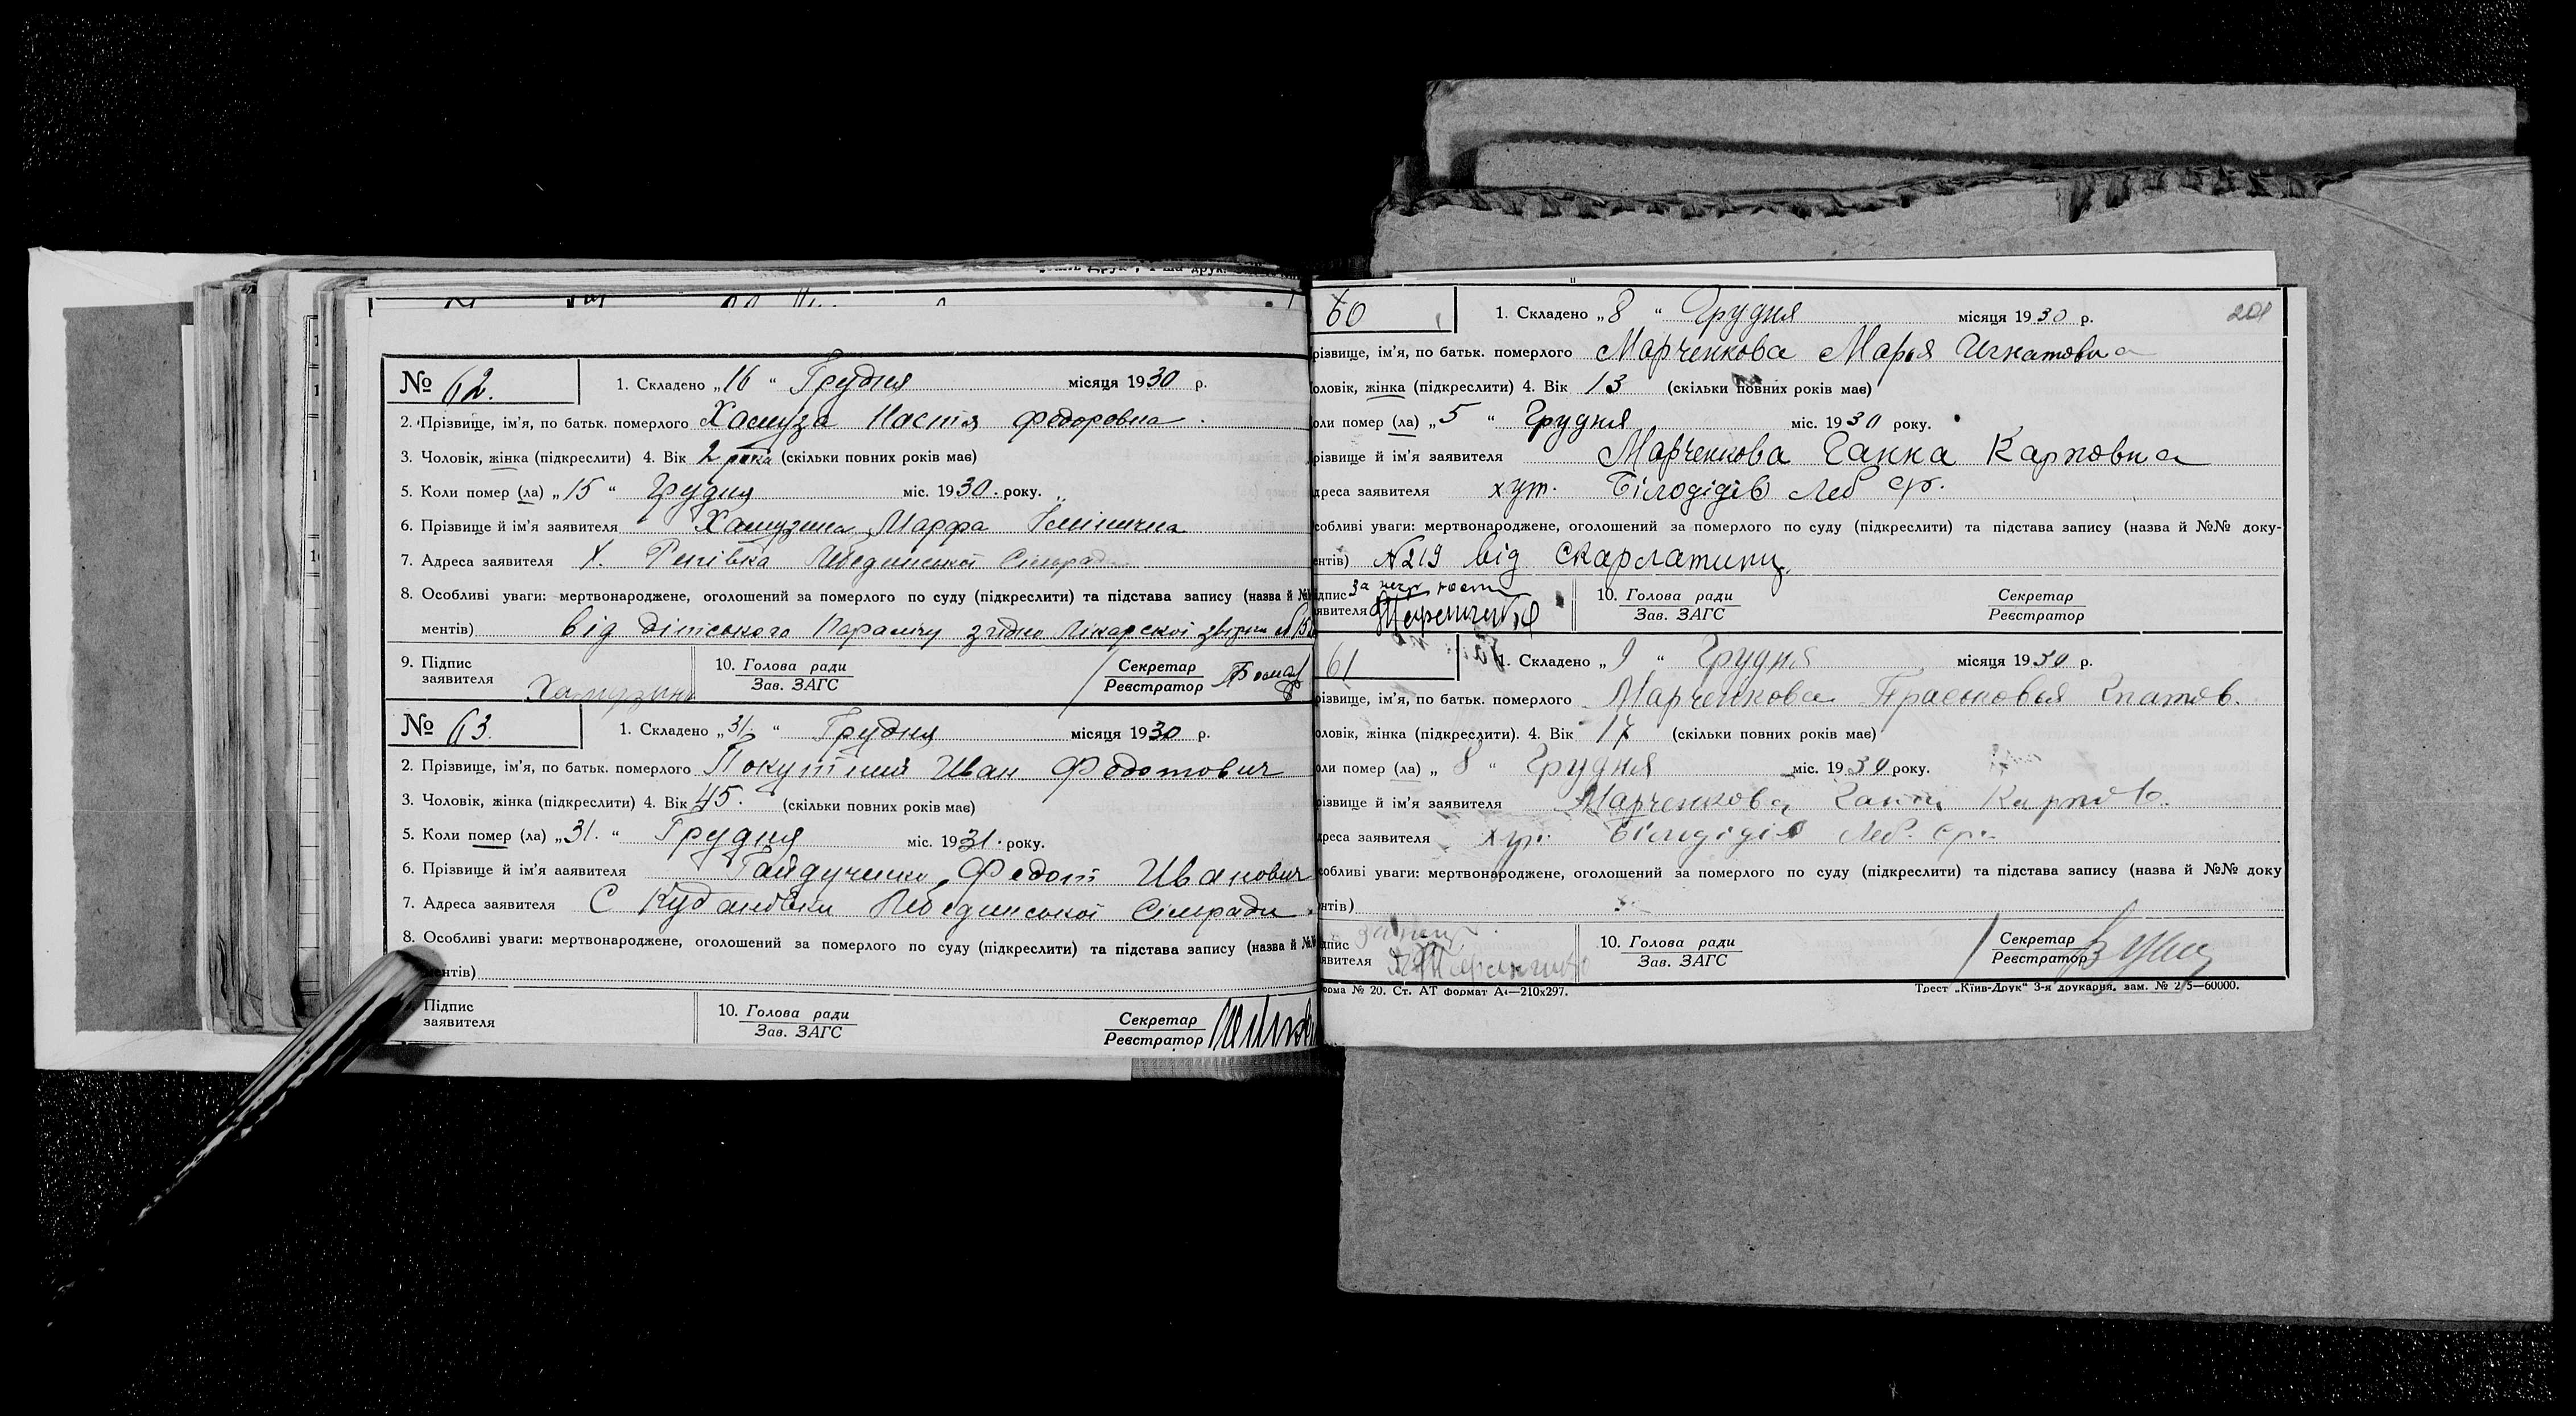 № 62.
1. Складено „16“ Грудня місяця 1930 р.
2. Прізвище, ім'я, по батьк. померлого Хамуза Настя Федоровна
3. Чоловік, жінка (підкреслити) 4. Вік 2 рока (скільки повних років має)
5. Коли помер (ла) „15“ Грудня міс. 1930. року.
6. Прізвище й ім'я заявителя Хамузина Марфа
7. Адреса заявителя х. Репівка Лебединської Сільради
8. Особливі уваги: мертвонароджене, оголошений за померлого по суду (підкреслити) та підстава запису (назва й №
ментів) від дітського Паралічу згідно лікарської
9. Підпис
заявителя
10. Голова ради
Зав. ЗАГС
Секретар
Реєстратор
№ 63.
1. Складено „31.“ Грудня місяця 1930 р.
2. Прізвище, ім'я, по батьк. померлого Покутний Иван Федотович
3. Чоловік, жінка (підкреслити) 4. Вік 45. (скільки повних років має)
5. Коли помер (ла) „31.“ Грудня міс. 1931. року.
6. Прізвище й ім'я заявителя Гайдученко Федот Иванович
7. Адреса заявителя С Лебединської Сільради
8. Особливі уваги: мертвонароджене, оголошений за померлого по суду (підкреслити) та підстава запису (назва й №
ментів)
Підпис
заявителя
10. Голова ради
Зав. ЗАГС
Секретар
Реєстратор
60
1. Складено „8“ Грудня місяця 1930 р.
201
різвище, ім'я, по батьк. померлого Марченкова Марья Игнатовна
оловік, жінка (підкреслити) 4. Вік 13 (скільки повних років має)
оли помер (ла) „5“ Грудня міс. 1930 року.
різвище й ім'я заявителя Марченкова Ганна Карповна
дреса заявителя хут. Білодідів Леб ср.
собливі уваги: мертвонароджене, оголошений за померлого по суду (підкреслити) та підстава запису (назва й №№ доку-
ентів) №219 від скарлатини
ідпис за
явителя
10. Голова ради
Зав. ЗАГС
Секретар
Реєстратор
61
1. Складено „9“ Грудня місяця 1930 р.
різвище, ім'я, по батьк. померлого Марченкова Прасковья
оловік, жінка (підкреслити). 4. Вік 17 (скільки повних років має)
оли помер (ла) „8“ Грудня міс. 1930 року.
різвище й ім'я заявителя Марченкова Ганна Карпов.
дреса заявителя хут. Білодідів Леб. ср.
собливі уваги: мертвонароджене, оголошений за померлого по суду (підкреслити) та підстава запису (назва й №№ доку
нтів)
ідпис
явителя
10. Голова ради
Зав. ЗАГС
Секретар
Реєстратор
орма № 20. Ст. АТ формат А4—210х297.
Трест „Київ-Друк“ 3-я друкарня, зам. № 2/5—60000.